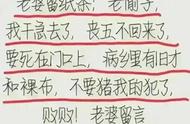 老婆留纸条：老偷子，
我干去了，丧五不回来了，
要死在门口上，病乡里有旧才
和裸布，不要猪我的犯了，
败败！老婆留言